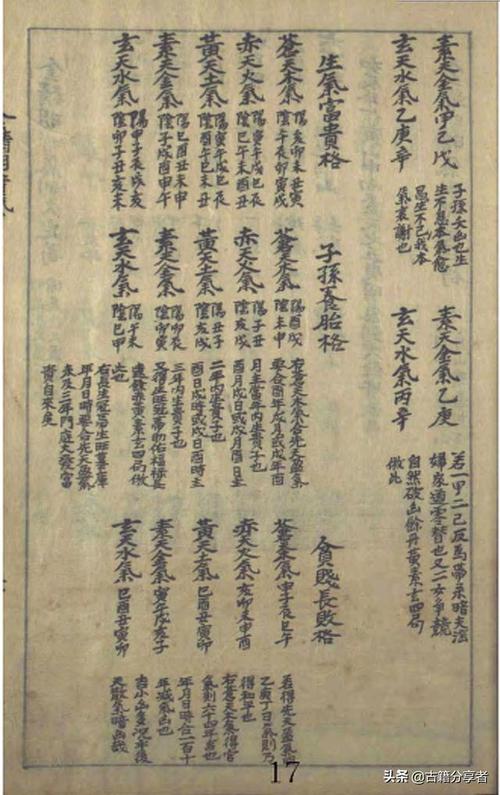 素天金氣甲乙戊
玄天水氣乙庚辛
子孫夭凶也生
生不息本氣愈
思生不已我本
氣衰謝也
素天金氣乙庚
玄天水氣丙辛
若一甲二己反為帶呆暗夫法
婦家道零替也又二女爭競
自然破凶餘丹黃素玄四局
倣此
生氣富貴格
蒼天木氣 陽亥卯未丑寅 陰午辰卯寅戌
赤天火氣 陽寅午戌巳辰 陰巳午未酉丑
黃天土氣 陽寅午戌巳辰 陰酉午巳未丑
素天金氣 陽巳酉丑未申 陰子戌酉申午
玄天水氣 陽申子辰戌亥 陰卯子丑亥未
子孫養胎格
蒼天木氣 陽酉戌 陰未申
赤天火氣 陽子丑 陰亥戌
黃天土氣 陽子丑 陰亥戌
素天金氣 陽卯辰 陰寅卯
玄天水氣 陽午未 陰巳申
右蒼天木氣合先天盛氣
要合酉年戌月或戌年酉
月主當年內生貴子也
酉月戌日或戌月酉日主
二年內生貴子也
酉日戌時或戌日酉時主
三年內生貴子也
又得生冠帶助佑福祿長
遠餘赤黃素玄四局倣
此也
右長生冠帶生旺墓庫
年月日時要合先天盛氣
未及三年門庭大發富
貴自來矣
貧賤長敗格
蒼天木氣 申子辰巳午
赤天火氣 亥卯未申酉
黃天土氣 巳酉丑寅卯
素天金氣 寅午戌亥子
玄天水氣 巳酉丑寅卯
若得先天盛氣
乙庚丁日氣則乃
得和平也
右蒼天木氣得官
氣則六十四年吉也
年月日時合一百十
年減氣凶也
吉小凶多況年後
天散氣暗凶哉
17
头条 @古籍分享者